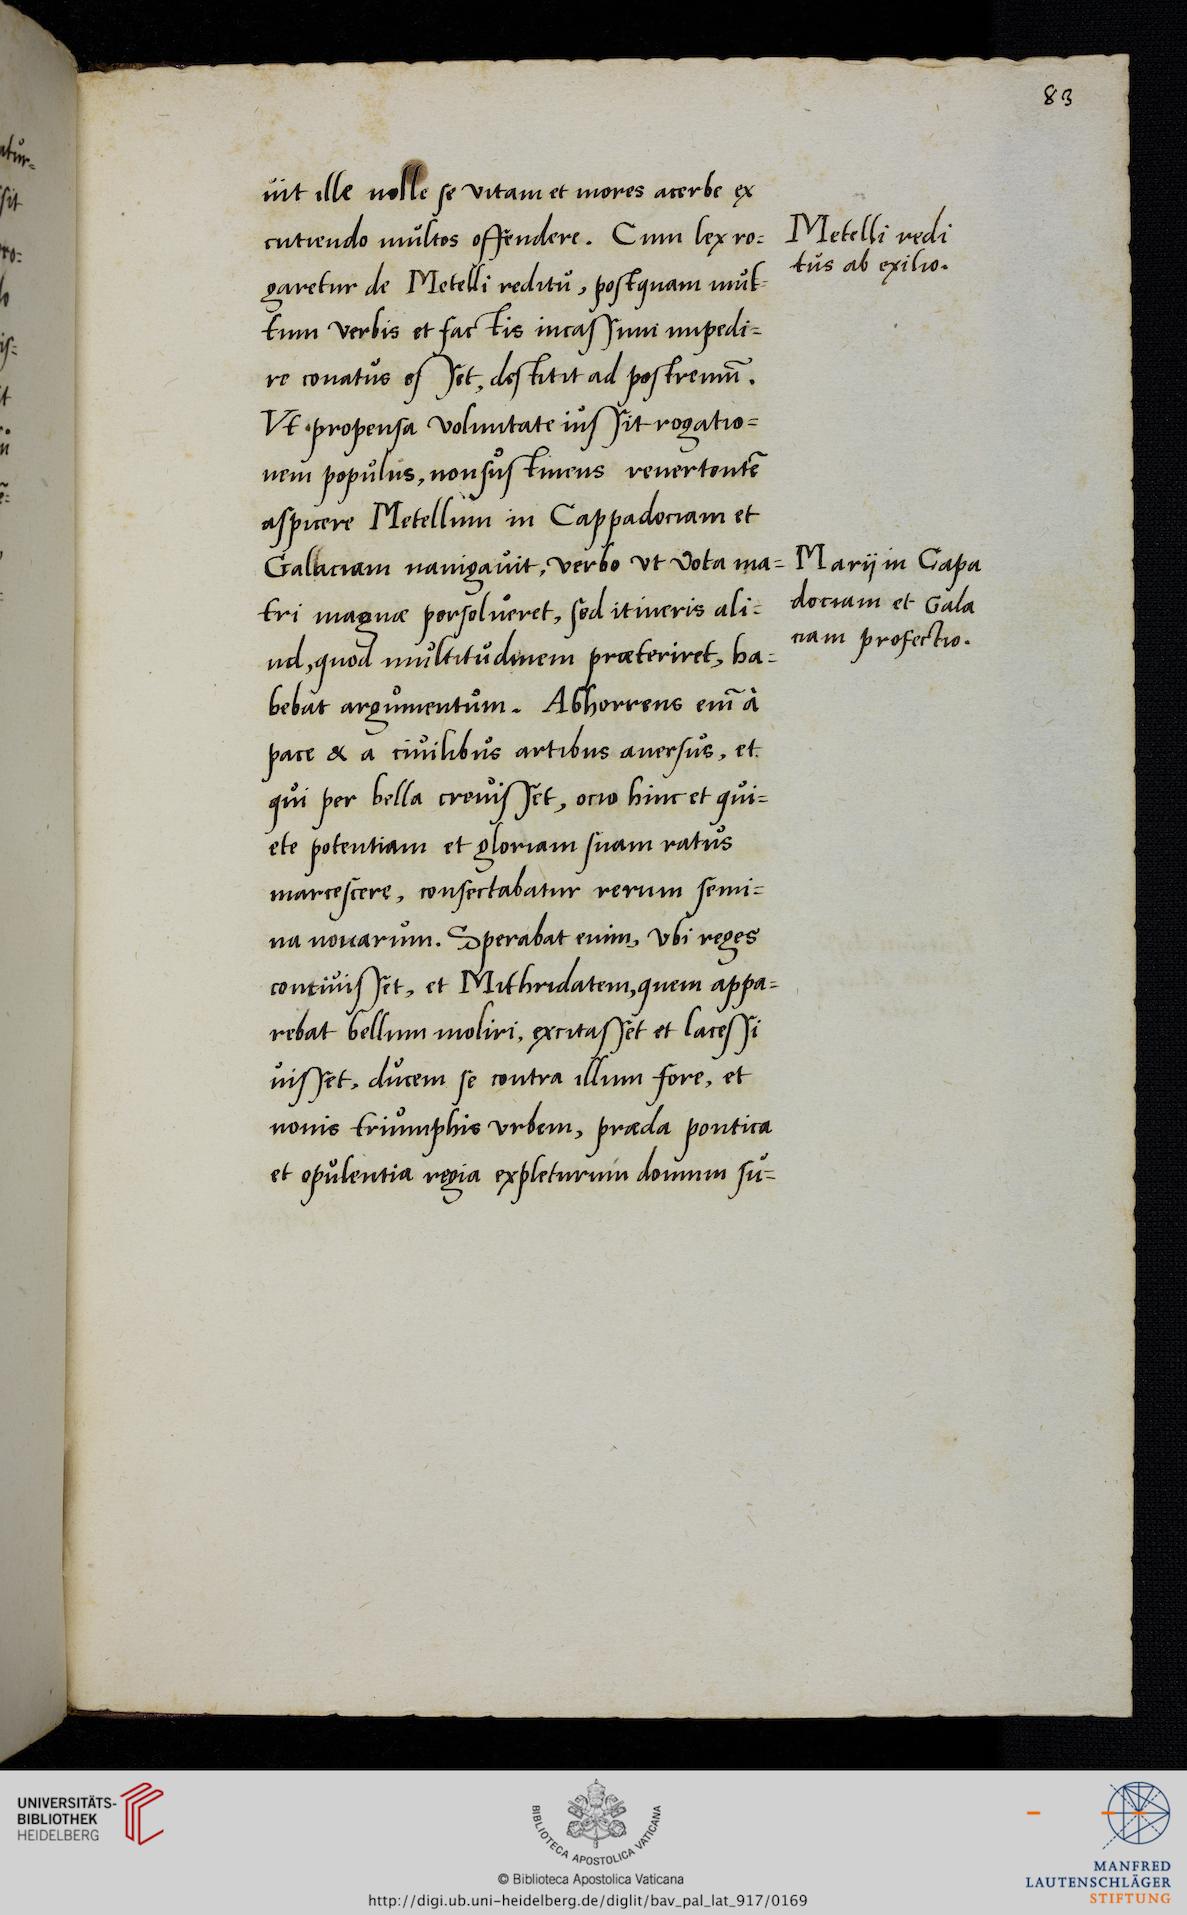 83
uit ille nolle se vitam et mores acerbe ex
cutiendo multos offendere. Cum lex ro=
garetur de Metelli reditu, postquam mul=
tum verbis et factis incassum impedi=
re conatus esset, destitit ad postremũ.
Vt propensa voluntate iussit rogatio=
nem populus, non sustinens reuertentẽ
aspicere Metellum in Cappadociam et
Galaciam nauigauit, verbo vt vota ma=
tri magnæ persolueret, sed itineris ali=
ud, quod multitudinem præteriret, ha=
bebat argumentum. Abhorrens em̃ à
pace & a ciuilibus artibus auersus, et
qui per bella creuisset, ocio hinc et qui=
ete potentiam et gloriam suam ratus
marcescere, consectabatur rerum semi=
na nouarum. Sperabat enim, vbi reges
conciuisset, et Mithridatem, quem appa=
rebat bellum moliri, excitasset et lacessi
uisset, ducem se contra illum fore, et
nouis triumphis vrbem, præda pontica
et opulentia regia expleturum domum su=
Metelli redi
tus ab exilio.
Marij in Capa
dociam et Gala
ciam profectio.
UNIVERSITÄTS-
BIBLIOTHEK
HEIDELBERG
BIBLIOTECA APOSTOLICA VATICANA
© Biblioteca Apostolica Vaticana
http://digi.ub.uni-heidelberg.de/diglit/bav_pal_lat_917/0169
MANFRED
LAUTENSCHLÄGER
STIFTUNG